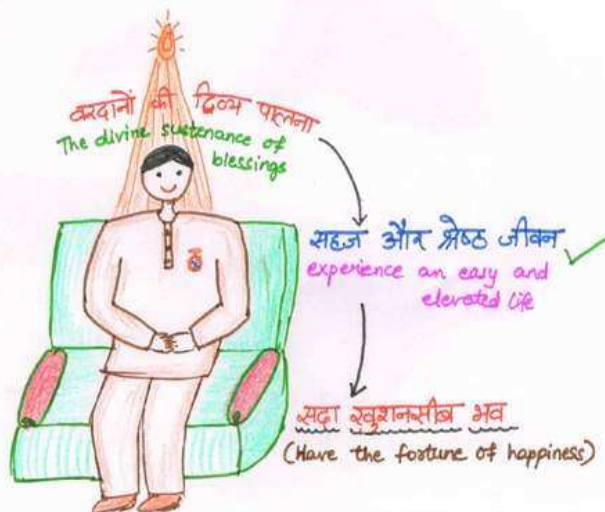 वरदानों की दिव्य पालना
The divine sustenance of
blessings
सहज और श्रेष्ठ जीवन
experience an easy and
elevated life
सदा खुशनसीब भव
(Have the fortune of happiness)